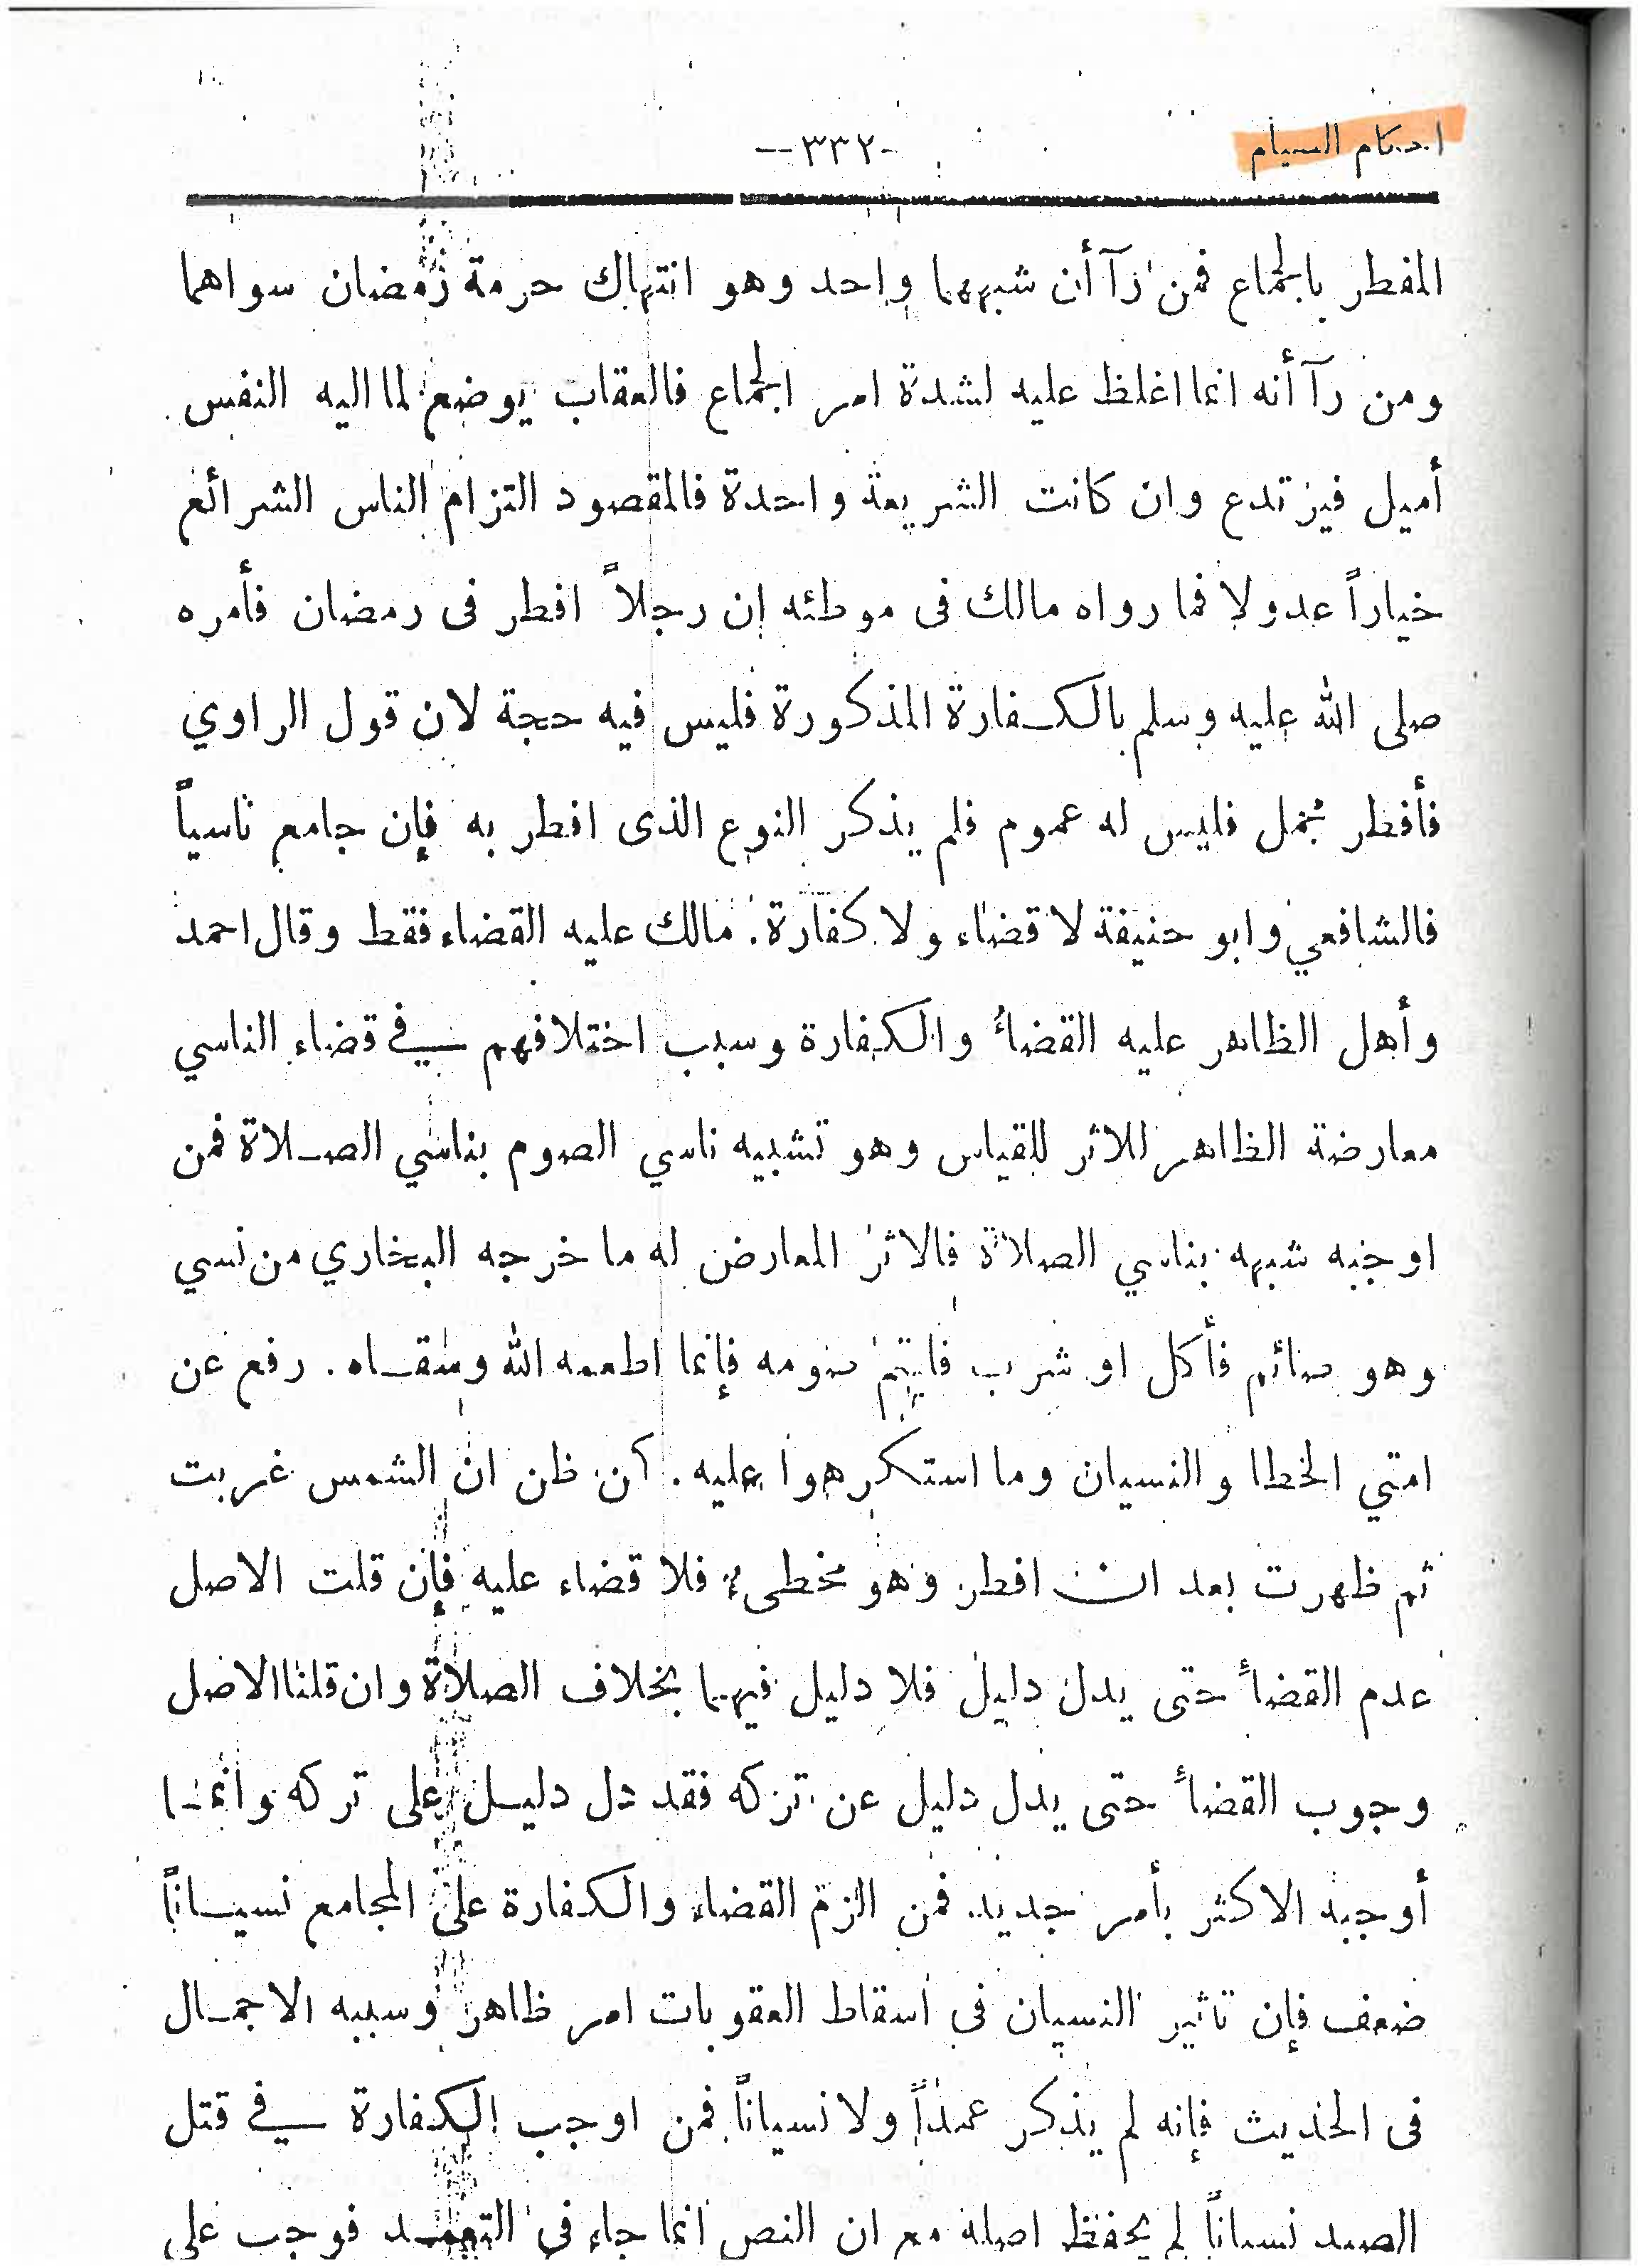 احكام الصيام
-٣٣٢--
المفطر بالجماع فمن رآ أن شبهها واحد وهو انتهاك حرمة رمضان سواهما
ومن رآ أنه انما اغلظ عليه لشدة امر الجماع فالعقاب يوضع لما اليه النفس
أميل فيزتدع وان كانت الشريعة واحدة فالمقصود التزام الناس الشرائع
خياراً عدولا فما رواه مالك فى موطئه إن رجلاً افطر فى رمضان فأمره
صلى الله عليه وسلم بالكفارة المذكورة فليس فيه حجة لان قول الراوي
فأفطر مجمل فليس له عموم فلم يذكر النوع الذى افطر به فإن جامع ناسياً
فالشافعي وابو حنيفة لا قضاء ولا كفارة. مالك عليه القضاء فقط وقال احمد
وأهل الظاهر عليه القضاأ والكفارة وسبب اختلافهم في قضاء الناسي
معارضة الظاهر للاثر للقياس وهو تشبيه ناسي الصوم بناسي الصلاة فمن
اوجبه شبهه بناسي الصلاة فالاثر المعارض له ما خرجه البخاري من نسي
وهو صائم فأكل او شرب فليتم صومه فإنما اطعمه الله وسقاه. رفع عن
امتي الخطا والنسيان وما استكرهوا عليه. كمن ظن ان الشمس غربت
ثم ظهرت بعد ان افطر وهو مخطىء فلا قضاء عليه فإن قلت الاصل
عدم القضأ حتى يدل دليل فلا دليل فيهما بخلاف الصلاة وان قلنا الاصل
وجوب القضأ حتى يدل دليل عن تركه فقد دل دليل على تركه وانما
أوجبه الاكثر بأمر جديد. فمن الزم القضاء والكفارة على المجامع نسياناً
ضعف فإن تاثير النسيان فى اسقاط العقوبات امر ظاهر وسببه الاجمال
فى الحديث فإنه لم يذكر عمداً ولا نسياناً فمن اوجب الكفارة في قتل
الصيد نسياناً لم يحفظ اصله مع ان النص انما جاء في التعمد فوجب على